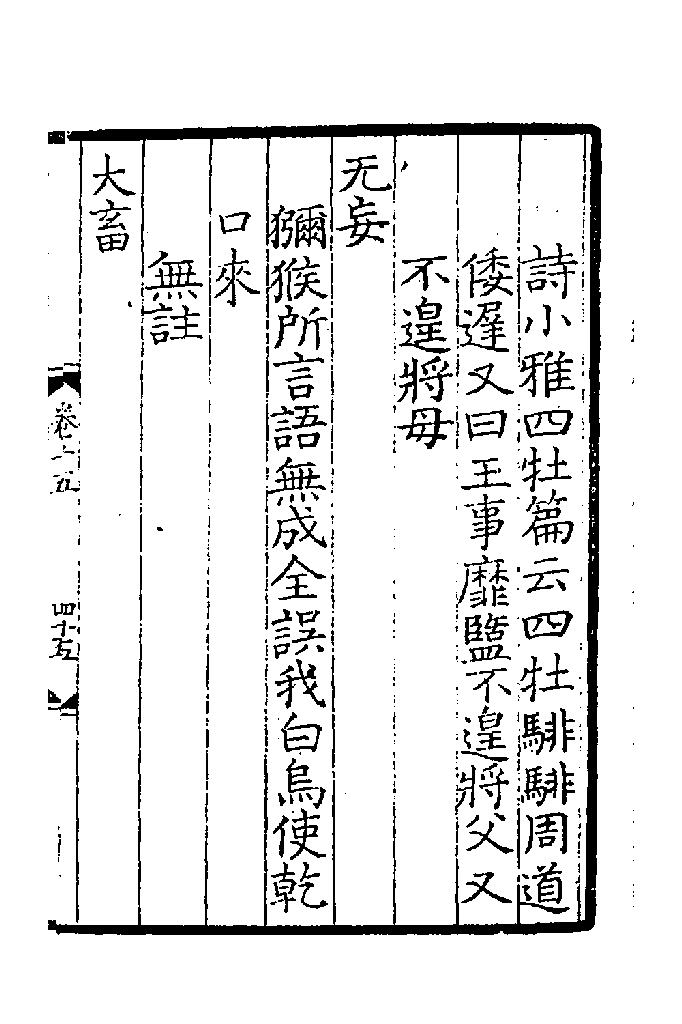 詩小雅四牡篇云四牡騑騑周道
倭遲又曰王事靡盬不遑將父又
不遑將母
无妄
獼猴所言語無成全誤我白烏使乾
口來
無註
大畜
卷十五
四十五